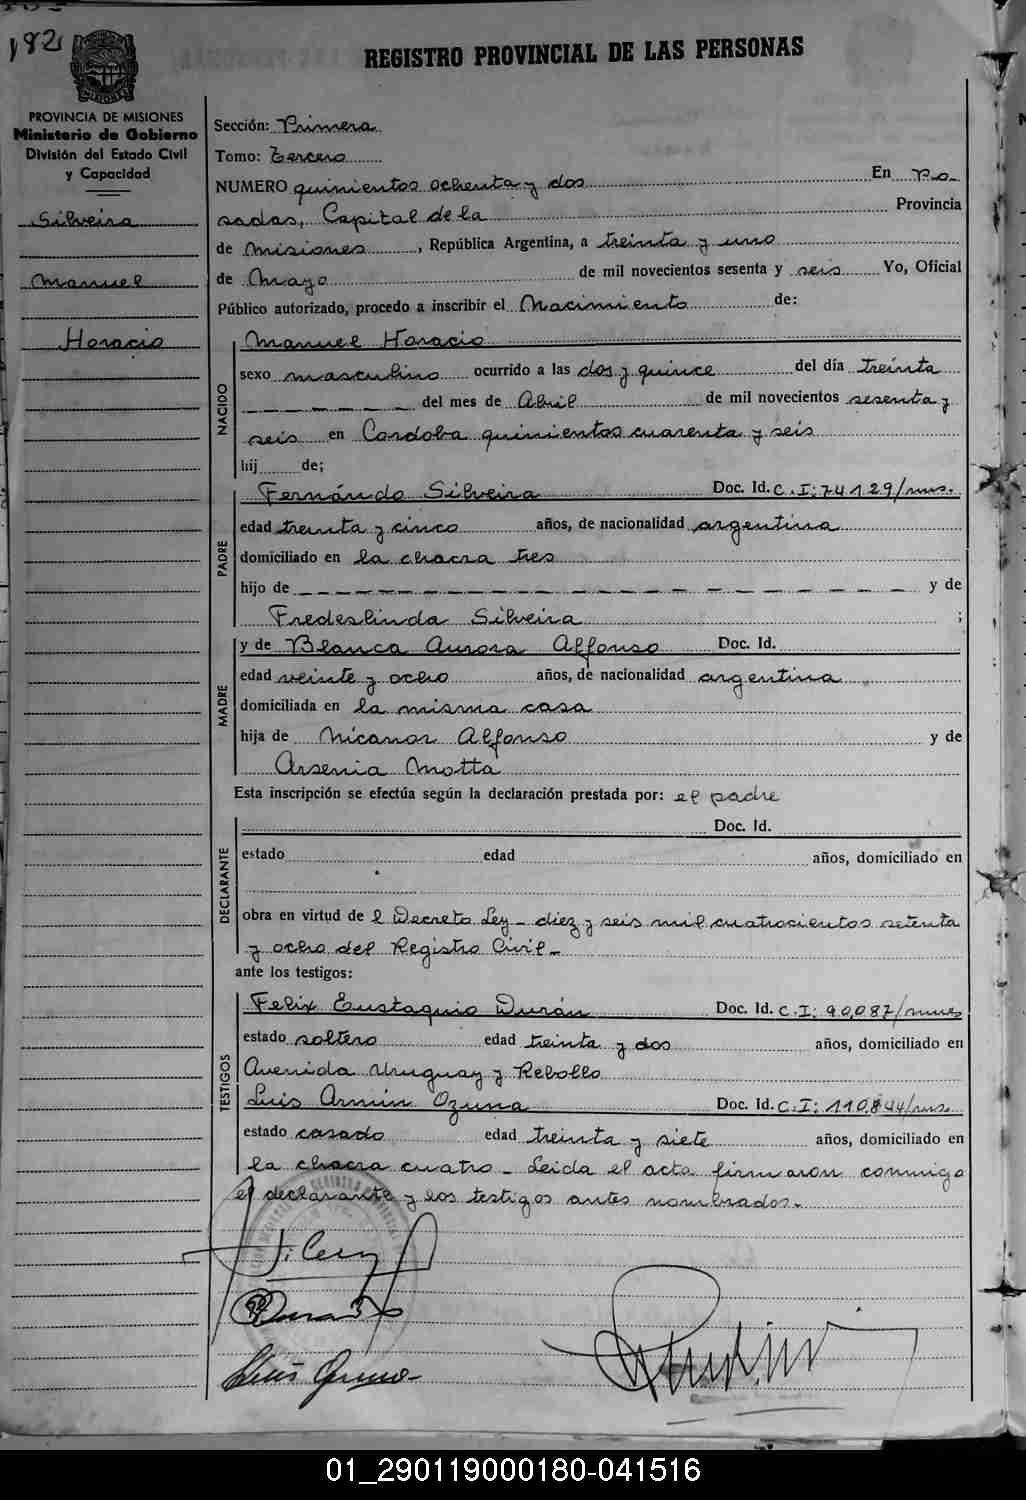 182
REGISTRO PROVINCIAL DE LAS PERSONAS
PROVINCIA DE MISIONES
Ministerio de Gobierno
División del Estado Civil
y Capacidad
Silveira
Manuel
Horacio
Sección: Primera
Tomo: Tercero
NUMERO quinientos ochenta y dos En Po-
sadas, Capital de la Provincia
de Misiones, República Argentina, a treinta y uno
de Mayo de mil novecientos sesenta y seis Yo, Oficial
Público autorizado, procedo a inscribir el Nacimiento de:
NACIDO
Manuel Horacio
sexo masculino ocurrido a las dos y quince del día treinta
del mes de Abril de mil novecientos sesenta y
seis en Cordoba quinientos cuarenta y seis
hij de;
PADRE
Fernándo Silveira Doc. Id. C.I: 74129/mns.
edad treinta y cinco años, de nacionalidad argentina
domiciliado en la chacra tres
hijo de y de
Fredeslinda Silveira ;
MADRE
y de Blanca Aurora Alfonso Doc. Id.
edad veinte y ocho años, de nacionalidad argentina
domiciliada en la misma casa
hija de Nicanor Alfonso y de
Arsenia Motta
Esta inscripción se efectúa según la declaración prestada por: el padre
DECLARANTE
Doc. Id.
estado edad años, domiciliado en
obra en virtud de l Decreto Ley - diez y seis mil cuatrocientos setenta
y ocho del Registro Civil -
ante los testigos:
TESTIGOS
Felix Eustaquio Durán Doc. Id. C.I: 90,087/mnes
estado soltero edad treinta y dos años, domiciliado en
Avenida Uruguay y Rebollo
Luis Armin Ozuna Doc. Id. C.I: 110,844/mns.
estado casado edad treinta y siete años, domiciliado en
la chacra cuatro - Leida el acta firmaron conmigo
el declarante y los testigos antes nombrados.
01_290119000180-041516